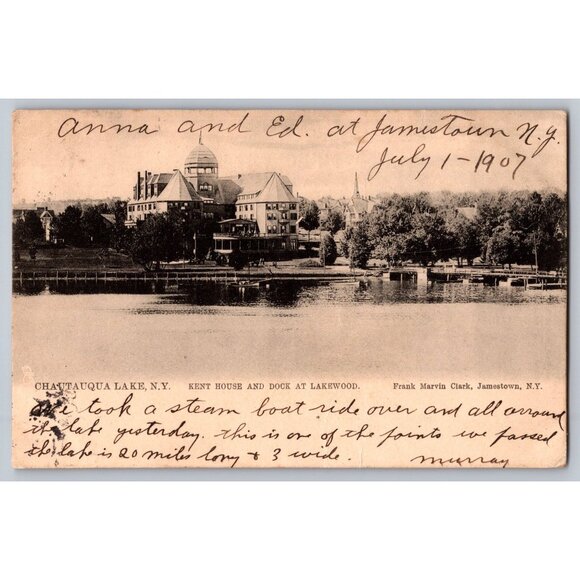 Anna and Ed. at Jamestown N.Y.
July 1-1907
CHAUTAUQUA LAKE, N.Y. KENT HOUSE AND DOCK AT LAKEWOOD. Frank Marvin Clark, Jamestown, N.Y.
We took a steam boat ride over and all arround
the lake yesterday. this is one of the points we passed
the lake is 20 miles long & 3 wide.
Murray